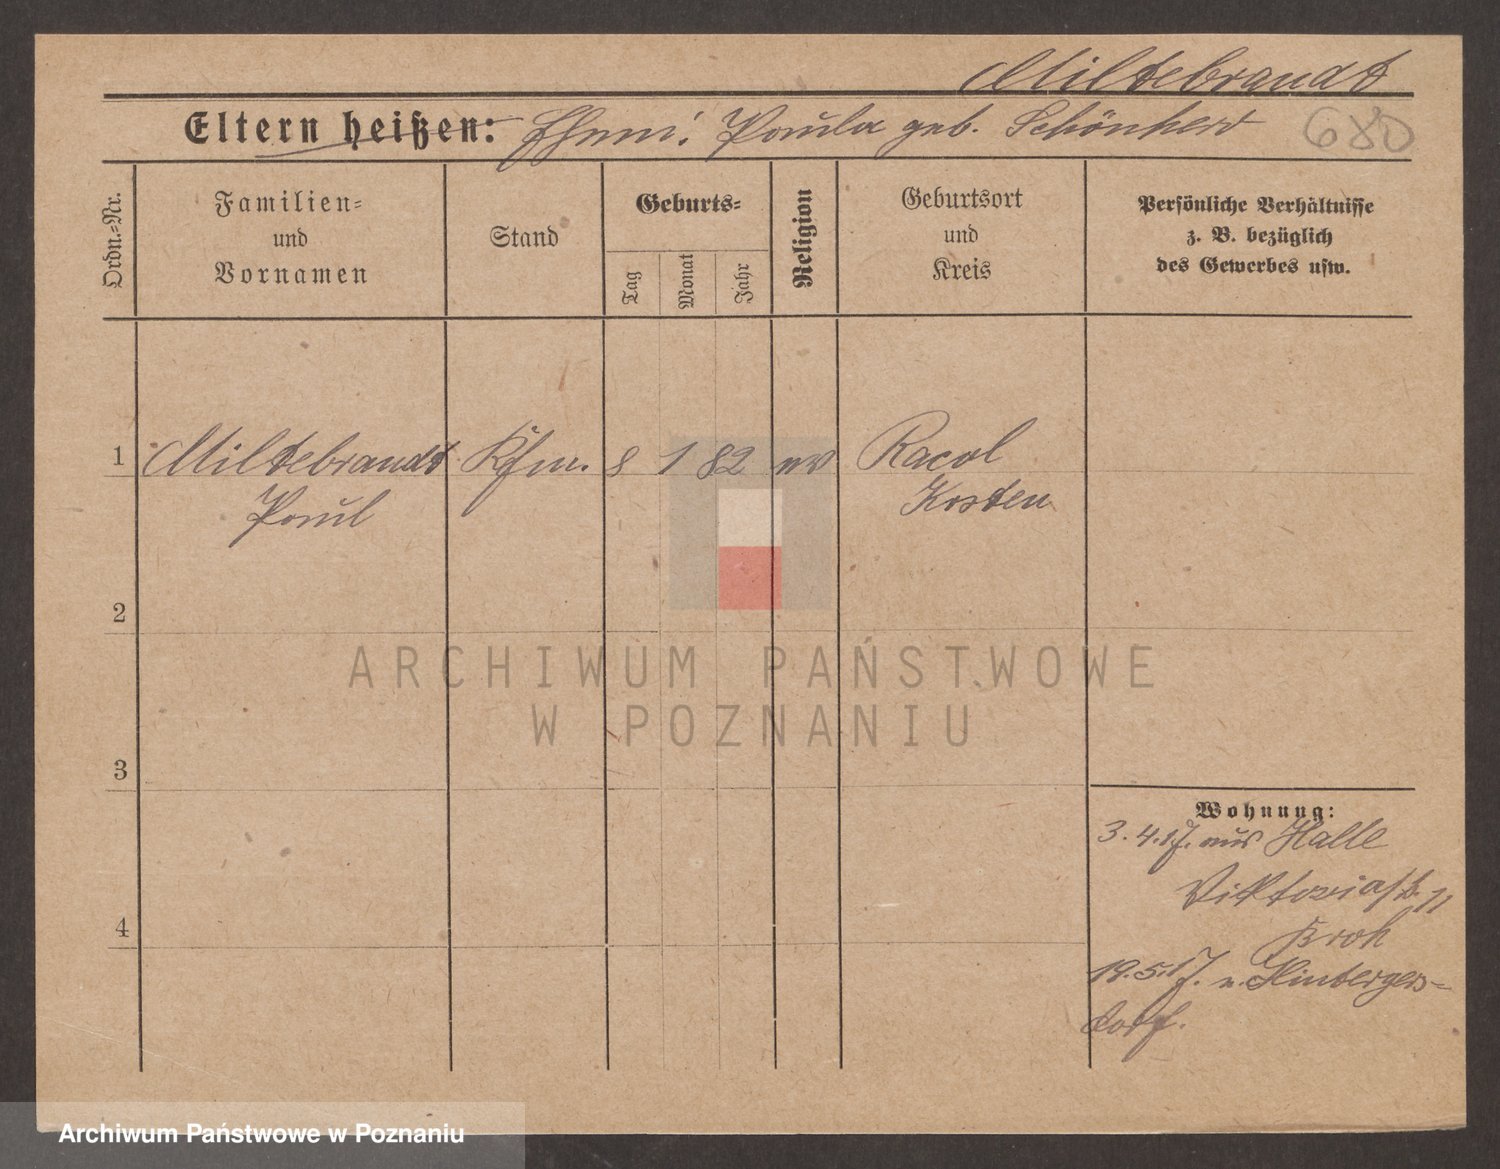 Mildebrandt
Eltern heißen: Ehem: Paula geb. Schönherr 680
Ordn.-Nr.
Familien-
und
Vornamen
Stand
Geburts-
Tag
Monat
Jahr
Religion
Geburtsort
und
Kreis
Persönliche Verhältnisse
z. B. bezüglich
des Gewerbes usw.
1 Mildebrandt Kfm. 8 1 82 ev Racol
Paul Kosten
2
3
4
ARCHIWUM PAŃSTWOWE
W POZNANIU
Wohnung:
3.4.17. aus Halle
Viktoriastr. 11
Kroh
19.5.17. n. Hinbergers-
dorf.
Archiwum Państwowe w Poznaniu